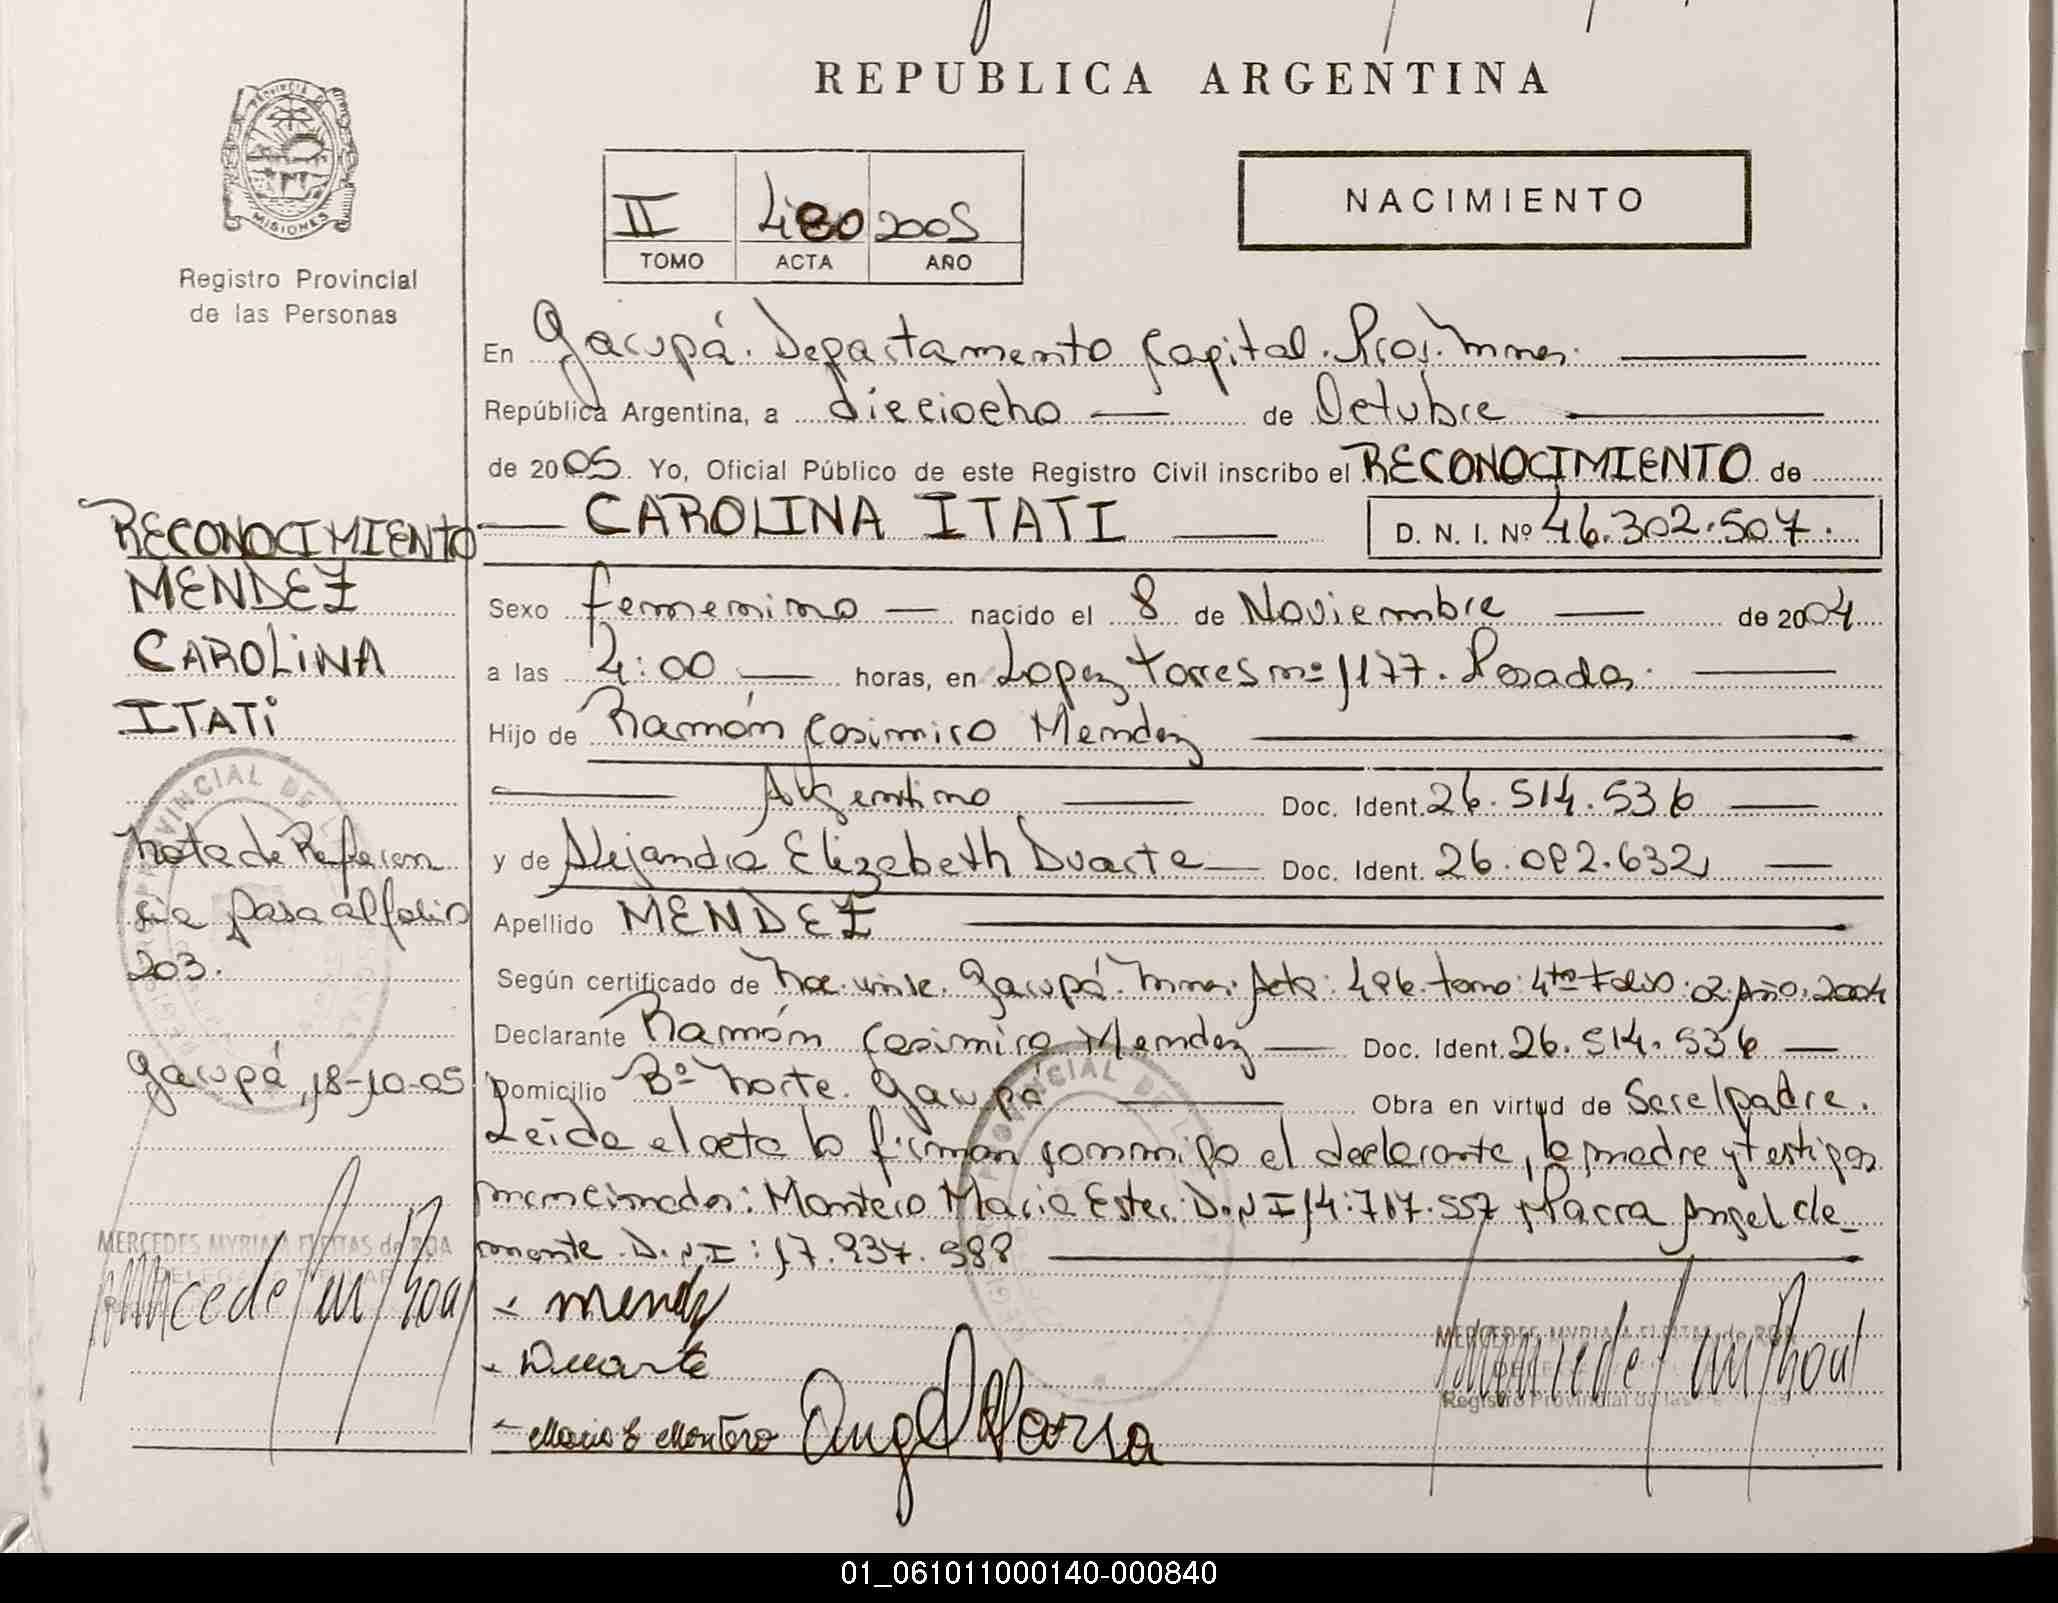 REPUBLICA ARGENTINA
PROVINCIA DE
MISIONES
Registro Provincial
de las Personas
II 480 2005
TOMO ACTA AÑO
NACIMIENTO
En Garupá. Departamento Capital. Pcos. Mnes.
República Argentina, a dieciocho de Octubre
de 2005. Yo, Oficial Público de este Registro Civil inscribo el RECONOCIMIENTO de
CAROLINA ITATI D. N. I. Nº 46.302.507.
Sexo femenino nacido el 8 de Noviembre de 2004
a las 4:00 horas, en Lopez Torres nº 1177. Posadas.
Hijo de Ramón Casimiro Mendez
Argentino Doc. Ident. 26.514.536
y de Alejandra Elizabeth Duarte Doc. Ident. 26.092.632
Apellido MENDEZ
Según certificado de Garupá. Mnes. Acta: 496. tomo: 4to Folio: 02. Año: 2004
Declarante Ramón Casimiro Mendez Doc. Ident. 26.514.536
Domicilio Bº Norte. Garupá Obra en virtud de Ser el padre.
Leida el acta la firman conmigo el declarante, la madre y testigos
mencionados: Montero Maria Ester. D.N.I 14.717.557 y Parra Angel cle-
mente. D.N.I: 17.937.988
Mendez
Duarte
Maria E Montero Angel Parra
MERCEDES MYRIAM FLEITAS de ROA
Registro Provincial de las Personas
RECONOCIMIENTO
MENDEZ
CAROLINA
ITATI
Nota de Referen
cia pasa al folio
203.
Garupá, 18-10-05
MERCEDES MYRIAM FLEITAS de ROA
01_061011000140-000840